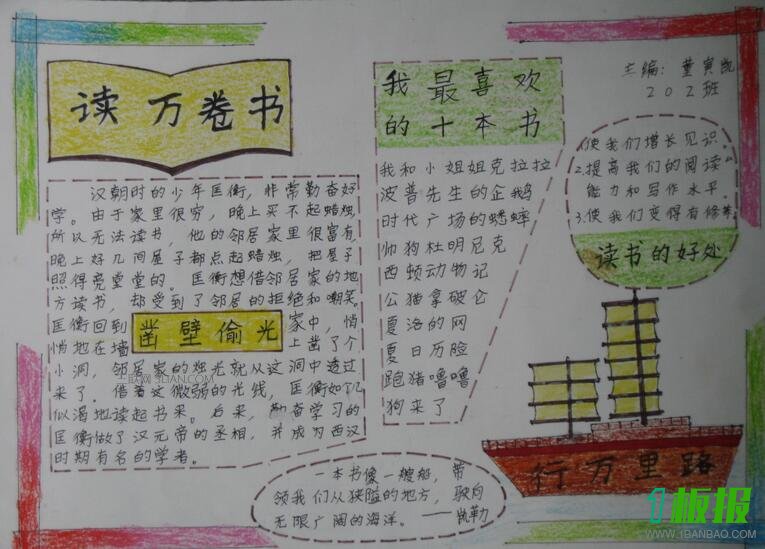 读万卷书
汉朝时的少年匡衡，非常勤奋好
学。由于家里很穷，晚上买不起蜡烛，
所以无法读书，他的邻居家里很富有，
晚上好几间屋子都点起蜡烛，把屋子
照得亮堂堂的。匡衡想借邻居家的地
方读书，却受到了邻居的拒绝和嘲笑。
匡衡回到
凿壁偷光
家中，悄
悄地在墙
上凿了个
小洞，邻居家的烛光就从这洞中透过
来了。借着这微弱的光线，匡衡如饥
似渴地读起书来。后来，勤奋学习的
匡衡做了汉元帝的丞相，并成为西汉
时期有名的学者。
我最喜欢
的十本书
我和小姐姐克拉拉
波普先生的企鹅
时代广场的蟋蟀
帅狗杜明尼克
西顿动物记
公猫拿破仑
夏洛的网
夏日历险
跑猪噜噜
狗来了
主编：董寅凯
202班
1.使我们增长见识。
2.提高我们的阅读
能力和写作水平。
3.使我们变得有修养。
读书的好处
行万里路
一本书像一艘船，带
领我们从狭隘的地方，驶向
无限广阔的海洋。——凯勒
1板报
WWW.1BANBAO.COM